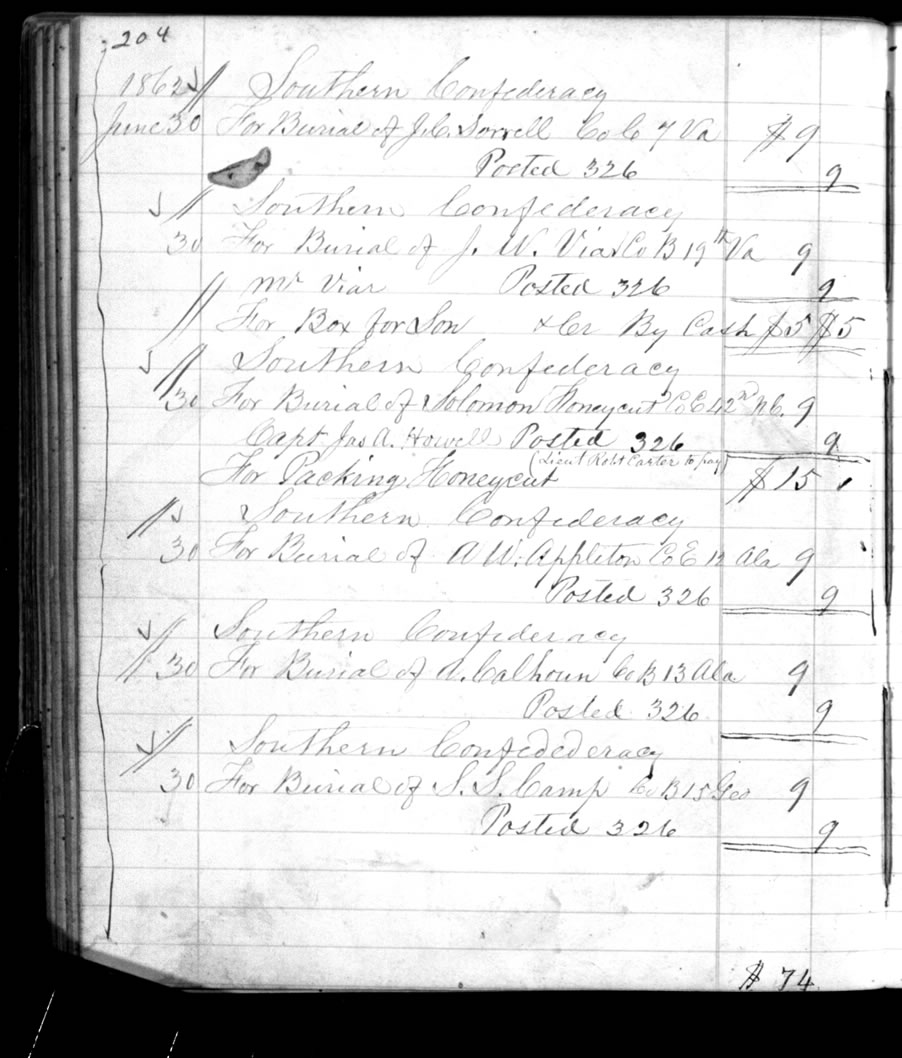 204
1862 Southern Confederacy
June 30 For Burial of J.C. Sorrell Co C 7 Va $9
Posted 326 9
Southern Confederacy
30 For Burial of J. W. Viar Co B 19th Va 9
Mr Viar Posted 326 9
For Box for Son + Cr By Cash $5 $5
Southern Confederacy
30 For Burial of Solomon Honeycut Co E 42nd N.C. 9
Capt Jas A. Howell Posted 326 9
(Lieut Robt Carter to pay)
For Packing Honeycut $15
Southern Confederacy
30 For Burial of A W. Appleton Co E 12 Ala 9
Posted 326 9
Southern Confederacy
30 For Burial of A. Calhoun Co B 13 Ala 9
Posted 326 9
Southern Confedederacy
30 For Burial of S. S. Camp Co B 15 Geo 9
Posted 326 9
$ 74